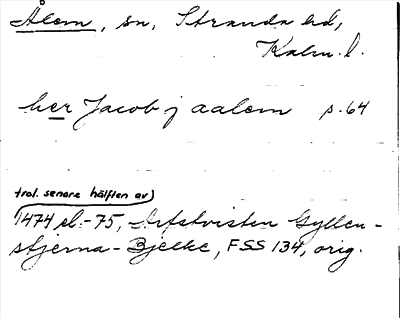 Ålem, sn, Stranda hd,
Kalm. l.
her Jacob j aalem s. 64
trol. senare hälften av)
1474 el. -75, Arftvisten Gyllen-
stjerna - Bjelke, FSS 134, orig.